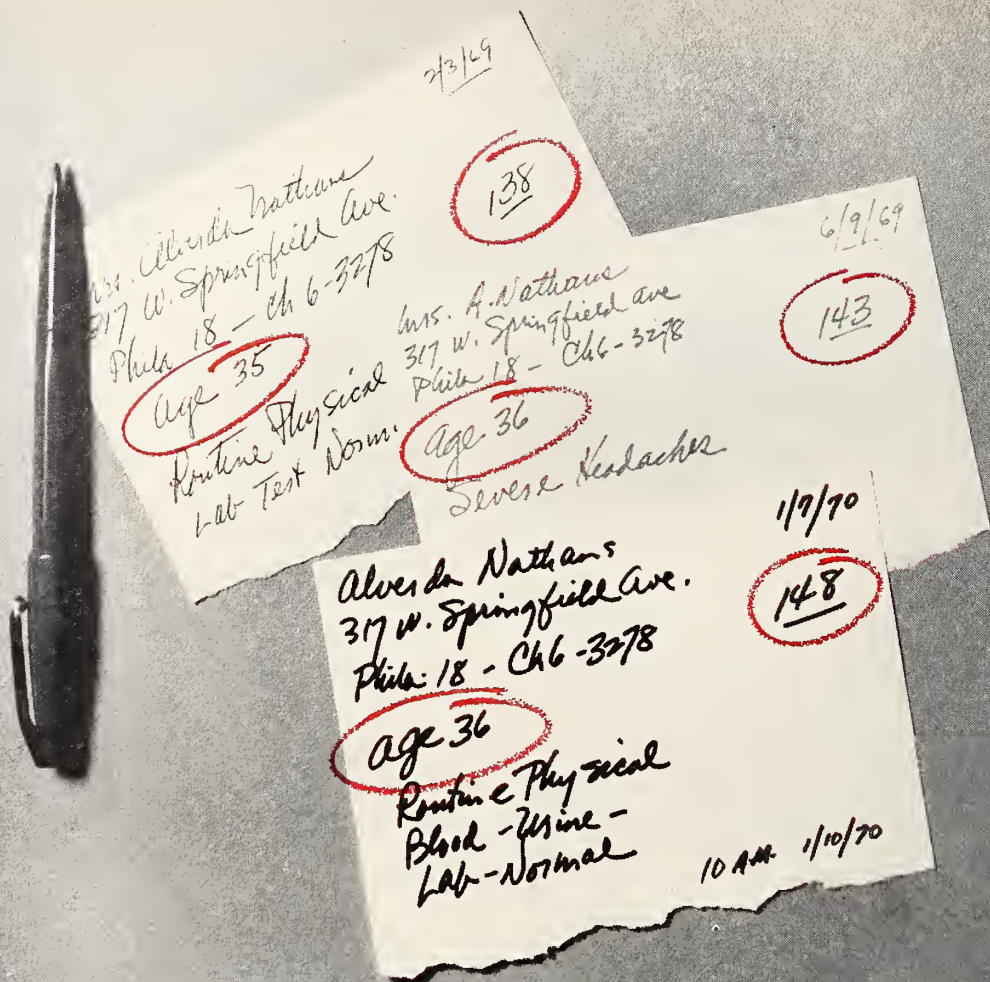 2/3/69
138
Mrs. Alverda Nathans
317 W. Springfield Ave.
Phila 18 - Ch 6-3278
Age 35
Routine Physical
Lab Test Norm.
6/9/69
143
Mrs. A. Nathans
317 W. Springfield Ave
Phila 18 - Ch6-3278
Age 36
Severe Headaches
1/7/70
148
Alverda Nathans
317 W. Springfield Ave.
Phila. 18 - Ch6-3278
Age 36
Routine Physical
Blood - Urine -
Lab - Normal
10 A.M. 1/10/70